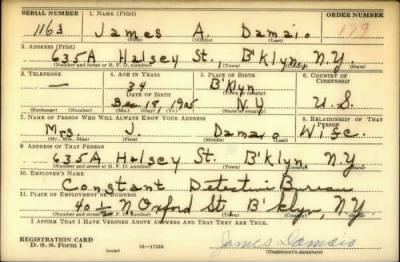 SERIAL NUMBER 1. NAME (Print) ORDER NUMBER
1163 James A. Damaio 179
(First) (Middle) (Last)
2. ADDRESS (Print)
635A Halsey St., B'klyn, N.Y.
(Number and street or R. F. D. number) (Town) (County) (State)
3. TELEPHONE 4. AGE IN YEARS 5. PLACE OF BIRTH 6. COUNTRY OF CITIZENSHIP
— 34 B'klyn
DATE OF BIRTH (Town or county)
Dec. 18, 1905 N.Y. U.S.
(Exchange) (Number) (Mo.) (Day) (Yr.) (State or country)
7. NAME OF PERSON WHO WILL ALWAYS KNOW YOUR ADDRESS 8. RELATIONSHIP OF THAT PERSON
Mrs. J. Damaio Wife.
(Mr., Mrs., Miss) (First) (Middle) (Last)
9. ADDRESS OF THAT PERSON
635A Halsey St. B'klyn, N.Y.
(Number and street or R. F. D. number) (Town) (County) (State)
10. EMPLOYER'S NAME
Constant Detective Bureau
11. PLACE OF EMPLOYMENT OR BUSINESS
40½ N. Oxford St. B'klyn, N.Y.
(Number and street or R. F. D. number) (Town) (County) (State)
I AFFIRM THAT I HAVE VERIFIED ABOVE ANSWERS AND THAT THEY ARE TRUE.
REGISTRATION CARD
D. S. S. Form 1 (over) 16—17105 James Damaio
(Registrant's signature)